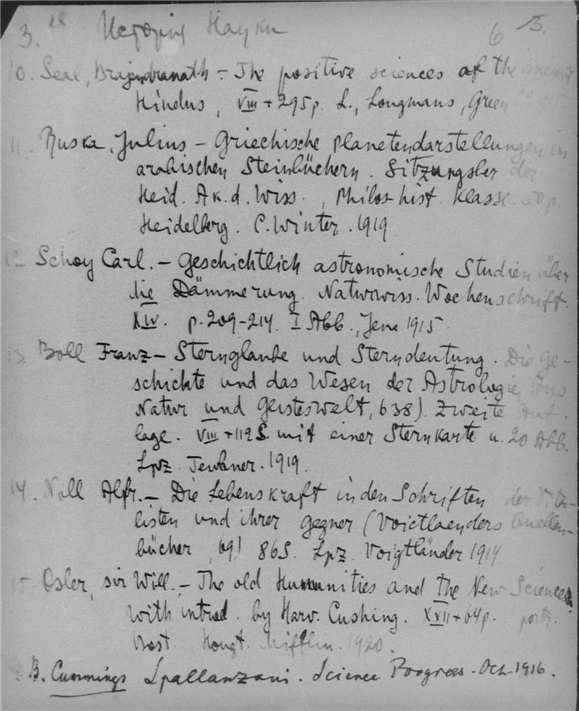 3. История Науки 6
10. Seal, Brajendranath - The positive sciences of the ancient
Hindus, VIII + 295 p. L., Longmans, Green
11. Ruska, Julius - Griechische planetendarstellungen in
arabischen Steinbüchern. Sitzungsber der
Heid. Ak. d. Wiss., Philos hist. Klasse. 50 p.
Heidelberg. C. Winter. 1919
12. Schoy Carl. - Geschichtlich astronomische Studien über
die Dämmerung. Naturwiss. Wochenschrift.
XIV. p. 209-214. I Abb., Jena 1915.
13. Boll Franz - Sternglaube und Sterndeutung. Die Ge-
schichte und das Wesen der Astrologie, (Aus
Natur und Geisteswelt, 638). Zweite Auf-
lage. VIII + 112 S. mit einer Sternkarte u. 20 Abb.
Lpz Teubner. 1919.
14. Noll Alfr. - Die Lebenskraft in den Schriften der Vita-
listen und ihrer gegner (Voictlaenders Quellen-
bücher, 69) 86 S. Lpz. Voigtländer 1914
15. Osler, sir Will. - The old Humanities and the New Science
with introd. by Harv. Cushing. XXII + 64 p. portr.
Bost. Hougt. Mifflin. 1920.
B. Cummings Spallanzani. Science Progress. Oct. 1916.